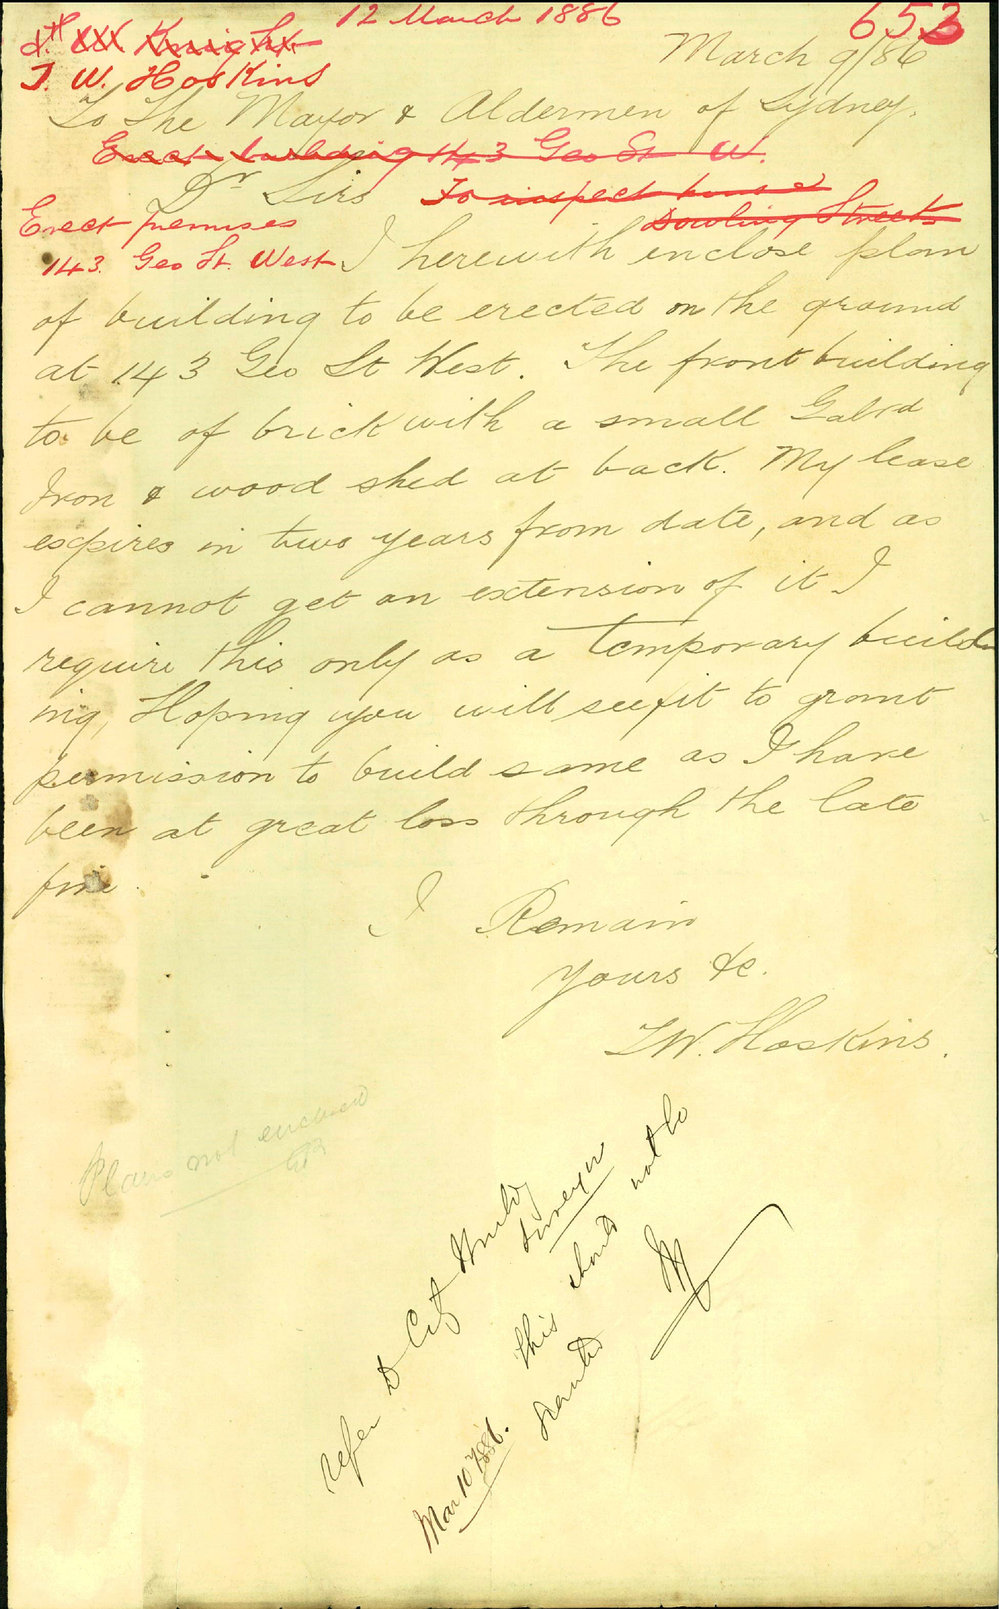 12 March 1886
653
J. W. Hoskins
March 9/86
To The Mayor & Aldermen of Sydney.
Erect building 143 Geo St W.
Dr Sirs
To inspect house at
Dowling Streets
Erect premises
143. Geo St. West
I herewith enclose plan
of building to be erected on the ground
at 143 Geo St West. The front building
to be of brick with a small Galvd
Iron & wood shed at back. My lease
expires in two years from date, and as
I cannot get an extension of it I
require this only as a temporary build-
ing, Hoping you will see fit to grant
permission to build same as I have
been at great loss through the late
fire.
I Remain
Yours &c.
J.W. Hoskins.
Plans not enclosed
refer to City Building
Surveyor
This should not be
granted
Mar 10 / 1886.